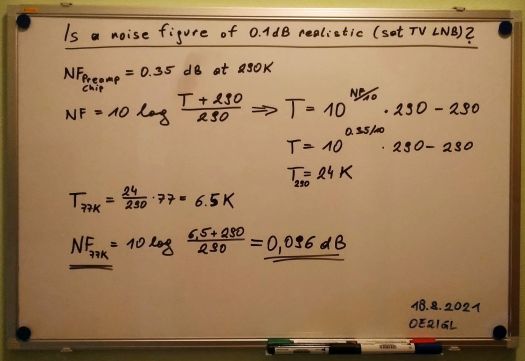 Is a noise figure of 0.1dB realistic (sat TV LNB)?
NF Preamp Chip = 0.35 dB at 290K
NF = 10 log (T + 290)/290 ⇒ T = 10^(NF/10) · 290 - 290
T = 10^(0.35/10) · 290 - 290
T290 = 24 K
T77K = 24/290 · 77 = 6.5K
NF77K = 10 log (6,5 + 290)/290 = 0,096 dB
18.8.2021
OE2IGL